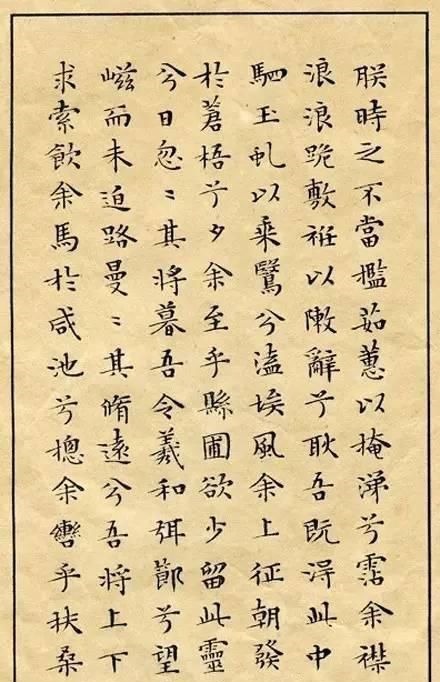 朕時之不當檻茹蕙以掩涕兮霑余襟
浪浪跪敷衽以敶辭兮耿吾既淂此中
駟玉虬以乘鷖兮溘埃風余上征朝發
於蒼梧兮夕余至乎縣圃欲少留此靈
兮日忽〻其將暮吾令羲和弭節兮望
嵫而未迫路曼〻其脩遠兮吾將上下
求索飲余馬於咸池兮摠余轡乎扶桑